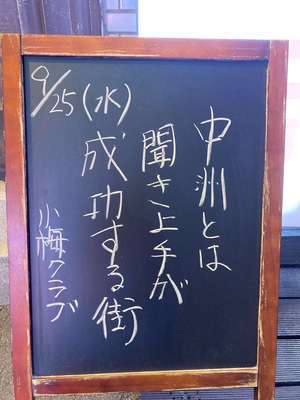 9/25(水)
中洲とは
聞き上手が
成功する街
小梅クラブ